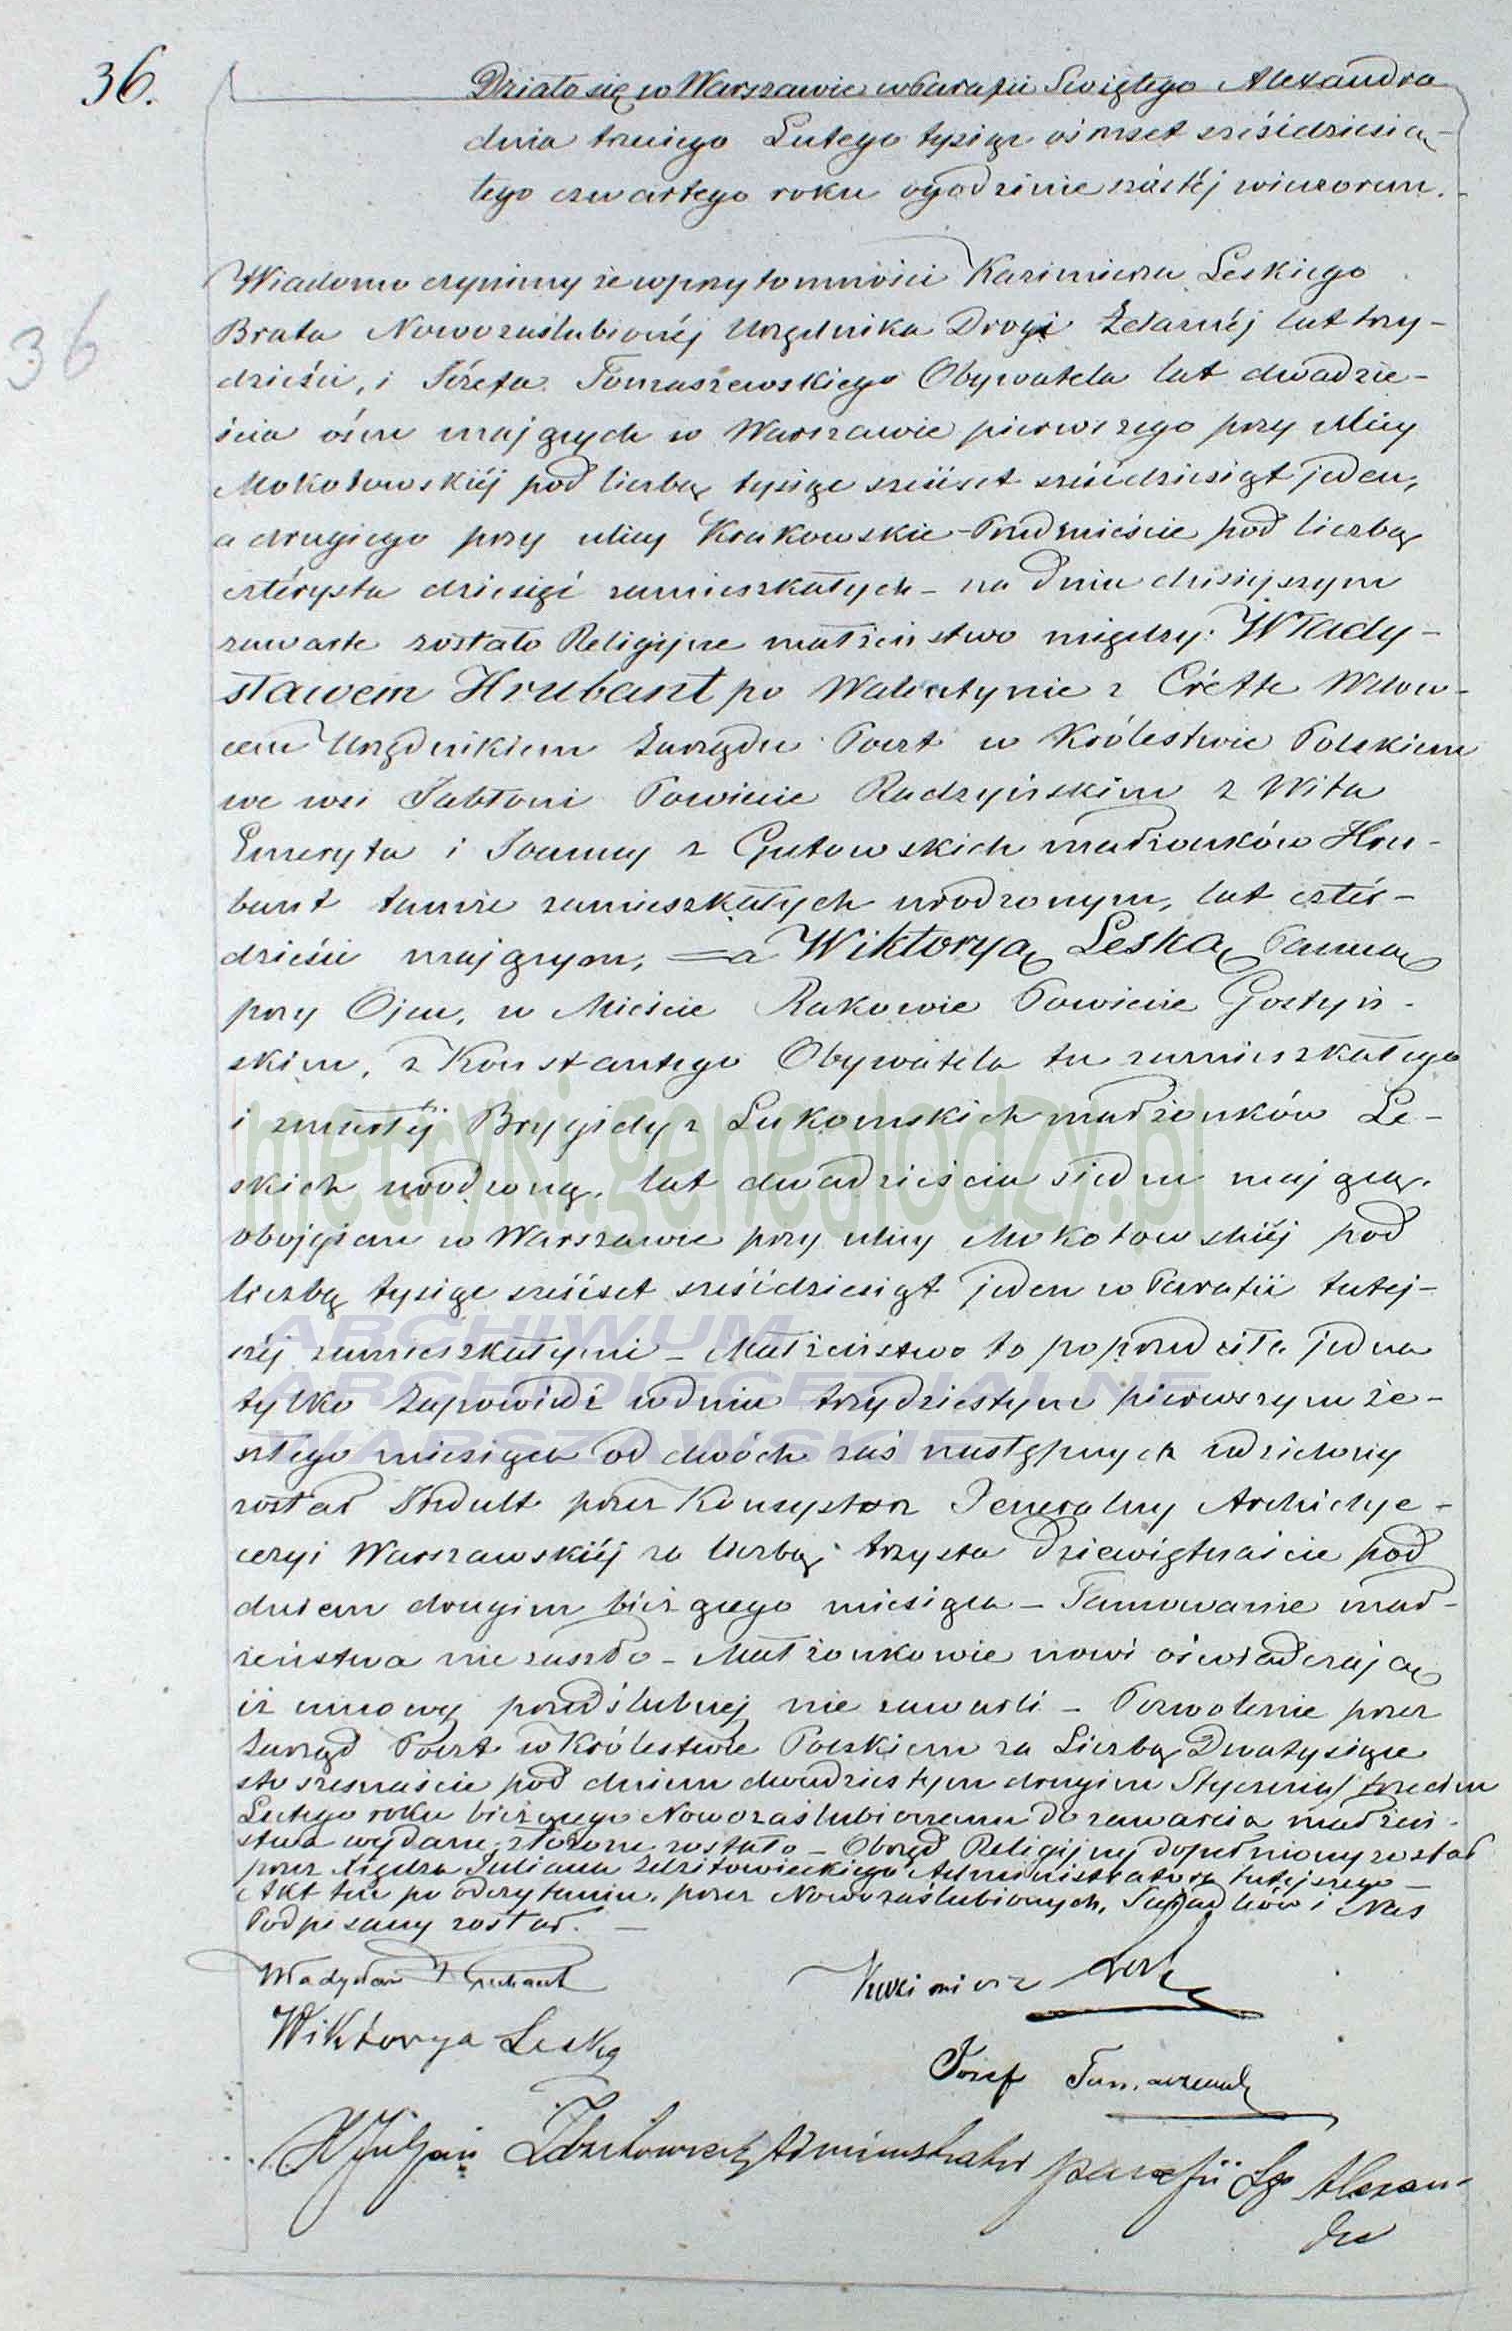 36.
Działo się w Warszawie w Parafii Swiętego Alexandra
dnia trzeciego Lutego tysiąc ośmset sześćdziesią-
tego czwartego roku o godzinie szóstéj wieczorem.
36
Wiadomo czynimy że w przytomności Kazimierza Leskiego
Brata Nowozaślubionéj Urzędnika Drogi Żelaznéj lat trzy-
dzieści, i Józefa Tomaszewskiego Obywatela lat dwadzie-
ścia ośm mających w Warszawie pierwszego przy ulicy
Mokotowskiéj pod liczbą tysiąc sześćset sześćdziesiąt jeden,
a drugiego przy ulicy Krakowskie-Przedmieście pod liczbą
cztérysta dziesięć zamieszkałych – na dniu dzisiejszym
zawarte zostało Religijne małżeństwo między: Włady-
sławem Hrubant po Walentynie z Wdow-
cem Urzędnikiem Zarządu Poczt w Królestwie Polskiem
we wsi Jabłoni Powiecie Radzyńskim z Wita
Emeryta i Joanny z Gutowskich małżonków Hru-
bant tamże zamieszkałych urodzonym, lat czter-
dzieści mającym, = a Wiktoryą Leską Panną
przy Ojcu, w Mieście Rakowie Powiecie Gostyń-
skim, z Konstantego Obywatela tu zamieszkałego
i zmarłéj Brygidy z Łukomskich małżonków Le-
skich urodzoną, lat dwadzieścia siedm mającą,
obojgiem w Warszawie przy ulicy Mokotowskiéj pod
liczbą tysiąc sześćset sześćdziesiąt jeden w Parafii tutej-
széj zamieszkałymi – Małżeństwo to poprzedziła jedna
tylko Zapowiedź w dniu trzydziestym pierwszym ze-
szłego miesiąca od dwóch zaś następnych udzielony
został Indult przez Konsystorz Jeneralny Archidye-
cezyi Warszawskiéj za liczbą trzysta dziewiętnaście pod
dniem drugim bieżącego miesiąca – Tamowanie mał-
żeństwa nie zaszło – Małżonkowie nowi oświadczają
iż umowy przedślubnej nie zawarli – Pozwolenie przez
Zarząd Poczt w Królestwie Polskiem za Liczbą Dwatysiące
sto szesnaście pod dniem dwudziestym drugim Stycznia / trzecim
Lutego roku bieżącego Nowozaślubionemu do zawarcia małżeń-
stwa wydane, złożone zostało – Obrzęd Religijny dopełniony został
przez Xiędza Juliana Zdzitowieckiego Administratora tutejszego –
Akt ten po odczytaniu, przez Nowozaślubionych, Świadków i Nas
Podpisany został. –
Władysław Hrubant
Kazimierz Leski
Wiktorya Leska
Józef Tomaszewski
X Juljan Zdzitowiecki Administrator parafii Sgo Alexan-
dra
metryki.genealodzy.pl
ARCHIWUM
ARCHIDIECEZJALNE
WARSZAWSKIE